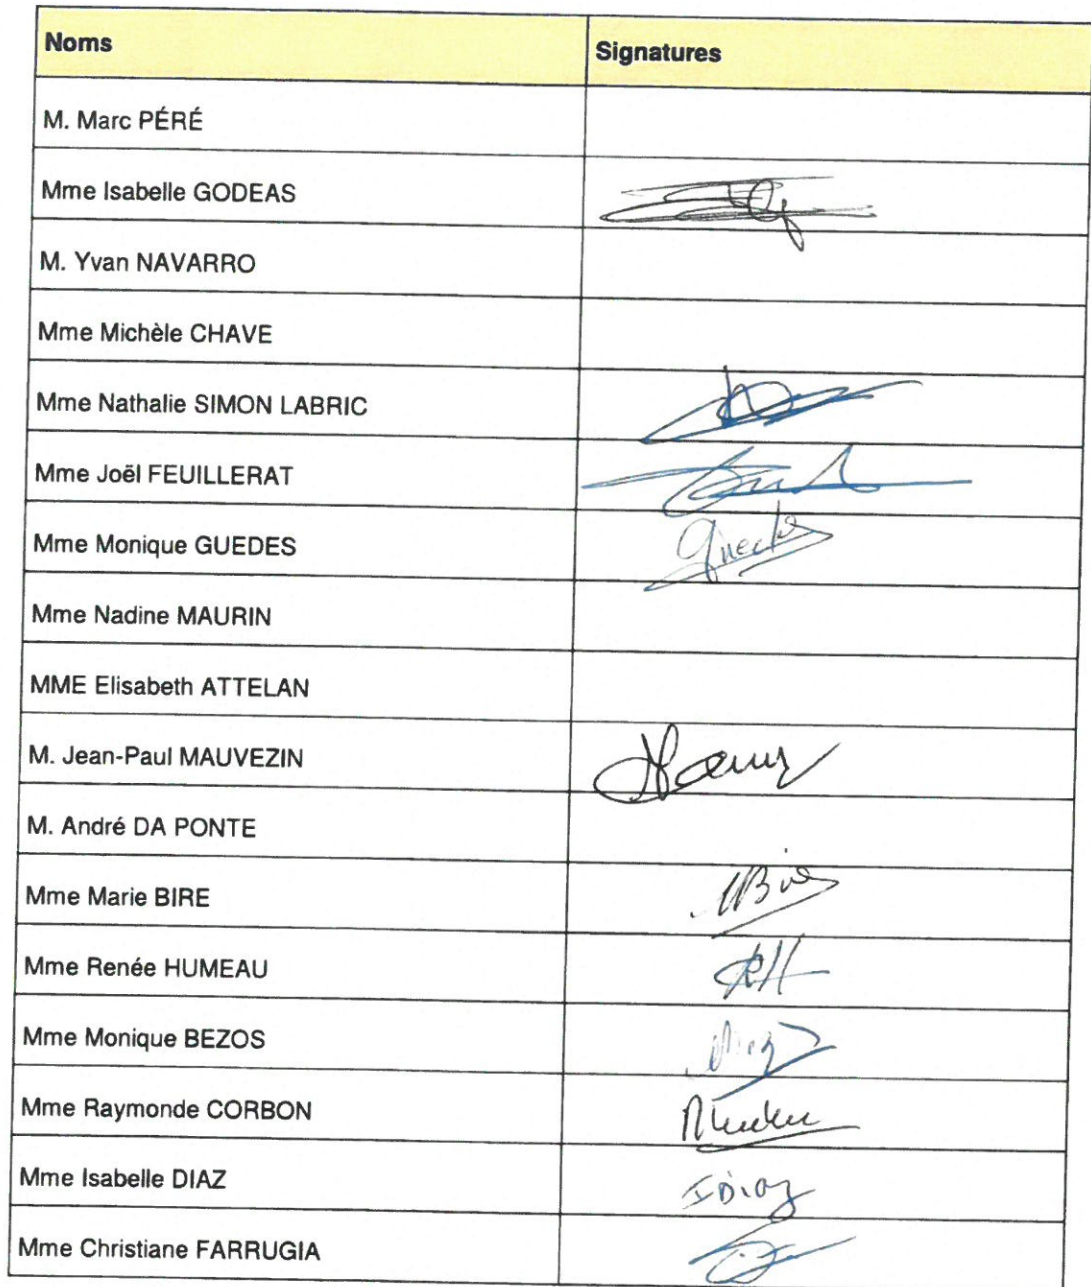 Noms Signatures
M. Marc PÉRÉ
Mme Isabelle GODEAS
M. Yvan NAVARRO
Mme Michèle CHAVE
Mme Nathalie SIMON LABRIC
Mme Joël FEUILLERAT
Mme Monique GUEDES
Mme Nadine MAURIN
MME Elisabeth ATTELAN
M. Jean-Paul MAUVEZIN
M. André DA PONTE
Mme Marie BIRE
Mme Renée HUMEAU RH
Mme Monique BEZOS
Mme Raymonde CORBON
Mme Isabelle DIAZ I Diaz
Mme Christiane FARRUGIA